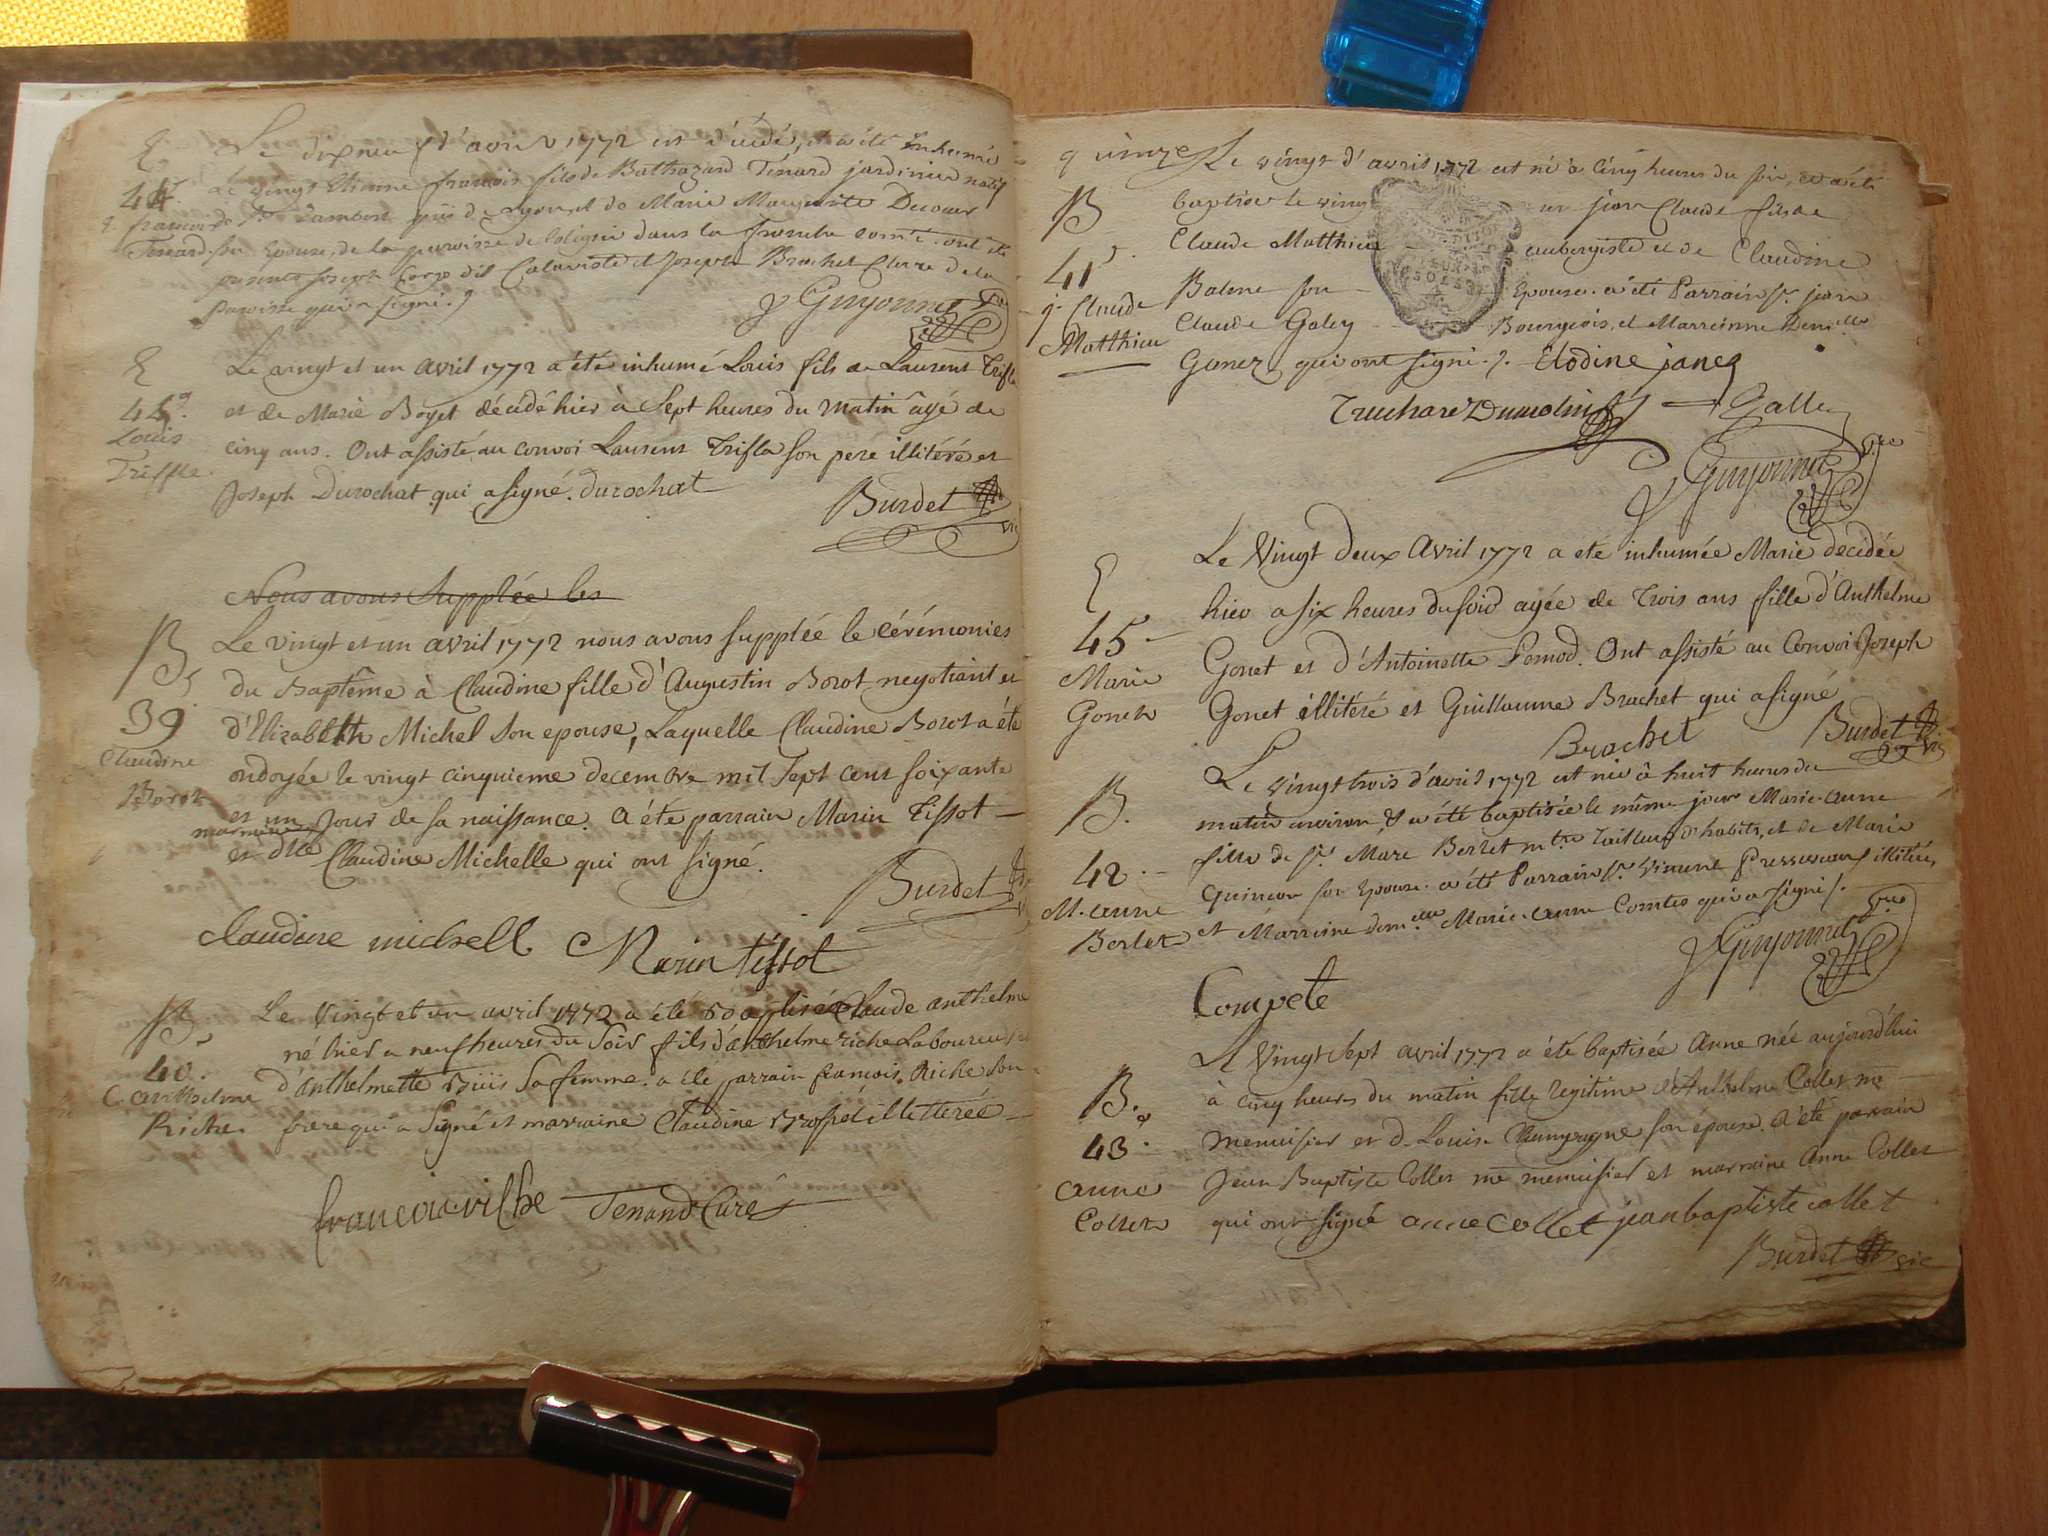 E
44.
E. françois
Tenard
Le dixneuf d'avril 1772 est décédé, et a été inhumé
le vingt Etienne françois fils de Balthazard Ténard jardinier natif
de St. Lambert près de Lyon, et de Marie Marguerite
son Epouse, de la paroisse de Coligni dans la franche comté. ont été
présents joseph et joseph Brachet Clerc de la
paroisse qui a signé.
Guyonnet vic
E
45.
Louis
Triffle.
Le vingt et un avril 1772 a été inhumé Louis fils de Laurent Trifle
et de Marie Boyet décédé hier à Sept heures du matin âgé de
cinq ans. Ont assisté au convoi Laurent Trifla son pere illitéré et
Joseph Durochat qui a signé. durochat
Burdet vic
Nous avons Supplée les
B
39
Claudine
Borot
Le vingt et un avril 1772 nous avons supplée le cérémonies
du Baptême à Claudine fille d'Augustin Borot negotiant et
d'Elizabeth Michel son epouse, Laquelle Claudine Borot a été
ondoyée le vingt cinquieme decembre mil Sept cent soixante
et un jour de sa naissance. a été parrain Marin Tissot
marraine
et dlle Claudine Michelle qui ont signé.
Burdet vic
claudine michell Marin tissot
B.
40.
C. anthelme
Riche.
Le vingt et un avril 1772 a été baptisé Claude anthelme
né hier a neuf heures du Soir fils d'anthelme riche Laboureur et
d'Anthelmette Sa femme. a été parrain françois Riche son
frere qui a Signé et marraine Claudine illetterée
francois riche Tenand Curé
quinze
B
41
j. Claude
Matthieu
Le vingt d'avril 1772 est né à Cinq heures du soir, et a été
baptisé le vingt un jean Claude fils de
Claude Matthieu aubergiste et de Claudine
Balme son Epouse. a été Parrain Sr. jean
Claude Galey Bourgeois, et Marreinne Demlle
qui ont signé.
Truchard Dumolin Galley
Guyonnet vic
E
45
Marie
Gonet
Le Vingt deux Avril 1772 a été inhumée Marie décédée
hier a six heures du soir agée de Trois ans fille d'Anthelme
Gonet et d'Antoinette Pernod. Ont assisté au Convoi Joseph
Gonet illitéré et Guillaume Brachet qui a signé
Brachet Burdet vic
B.
42.
M. anne
Berlet
Le vingt trois d'avril 1772 est née à huit heures du
matin environ, & a été baptisée le même jour Marie-anne
fille de Sr. Marc Berlet mtre Tailleur d'habits, et de Marie
Quinson son Epouse. a été Parrain Sr. Vincent illitéré,
et Marraine demlle Marie-anne Comtes qui a signé.
Guyonnet vic
Compete
B.
43.
anne
Collet
Le Vingt Sept avril 1772 a été baptisée Anne née aujourd'hui
à cinq heures du matin fille legitime d'Anthelme Collet me
menuisier et d. Louise son épouse. a été parrain
Jean Baptiste Collet me menuisier et marraine Anne Collet
qui ont signé anne collet jean baptiste collet
Burdet vic